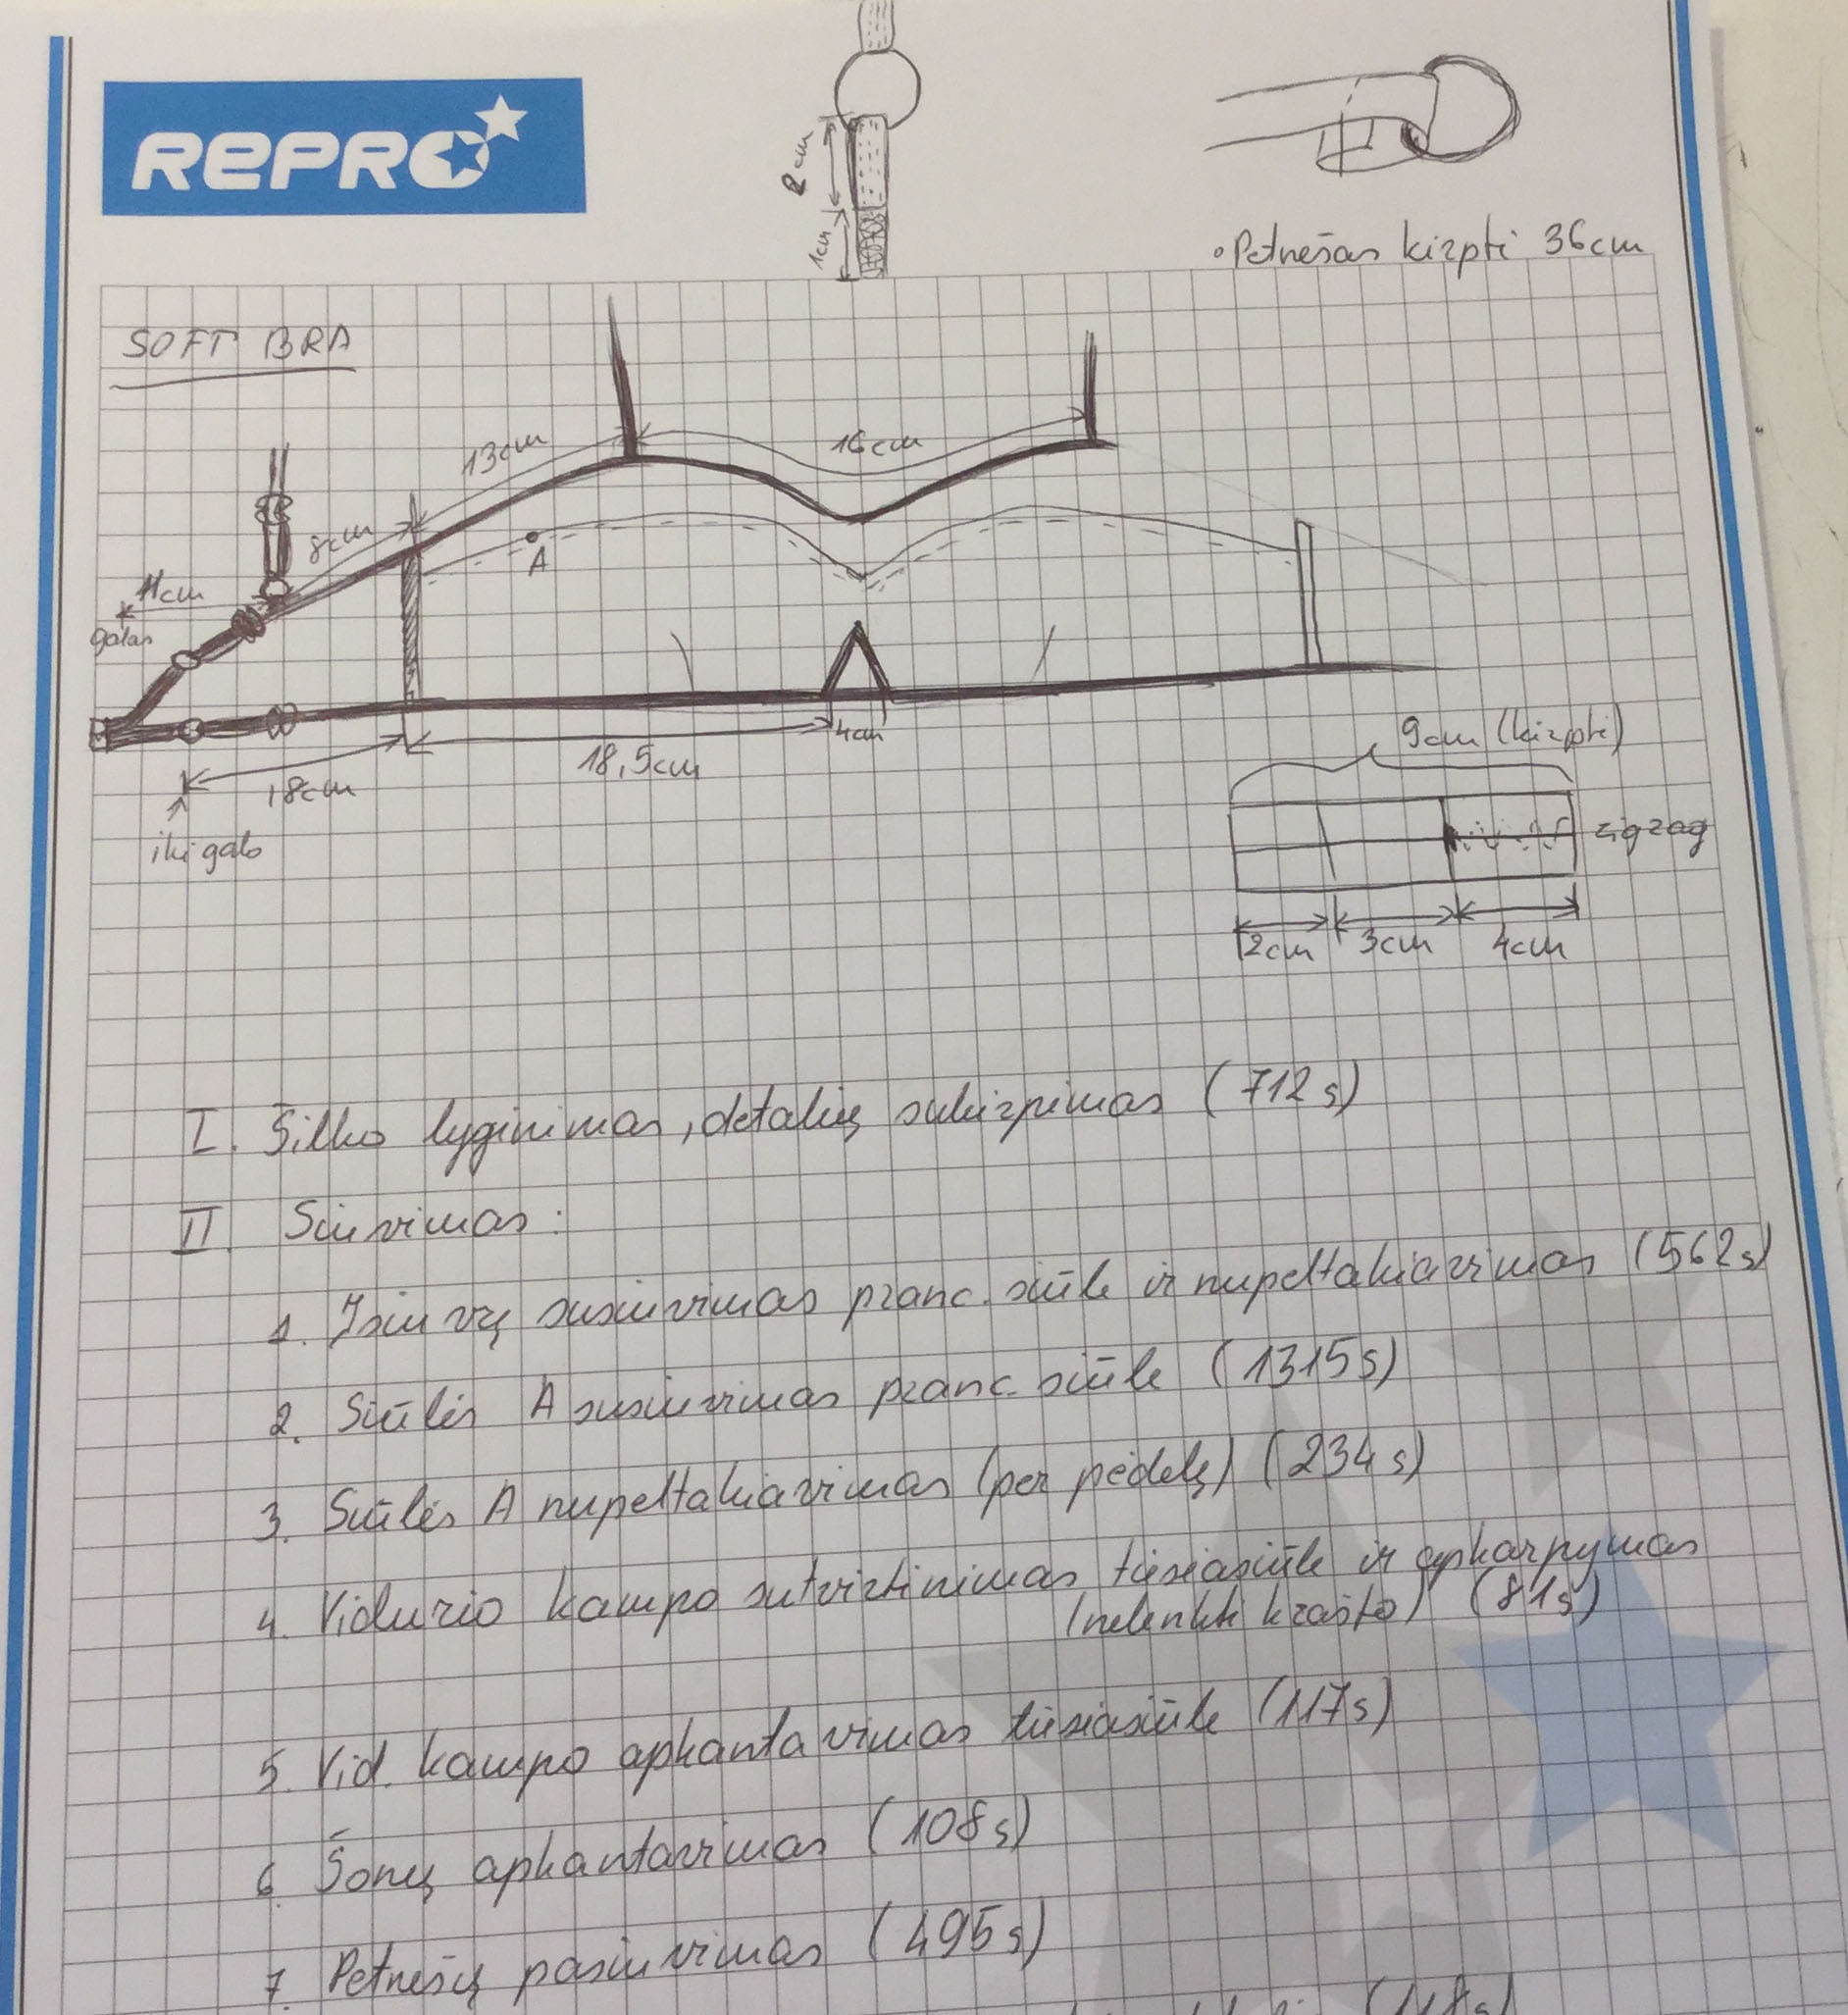 REPRO
2cm
1cm
• Petnešas kirpti 36cm
SOFT BRA
13cm
16cm
8cm
A
11cm
galas
18,5cm
4cm
18cm
iki galo
9cm (kirpti)
zigzag
2cm 3cm 4cm
I. Šilko lyginimas, detalių sukirpimas (712s)
II. Siuvimas:
1. Įsiuvų susiuvimas pranc. siūle ir nupeltakiavimas (562s)
2. Siūlės A susiuvimas pranc. siūle (1315s)
3. Siūlės A nupeltakiavimas (per pėdelę) (234s)
4. Vidurio kampo sutvirtinimas tiesiasiūle ir apkarpymas
(nelenkti krašto) (81s)
5. Vid. kampo apkantavimas tiesiasiūle (117s)
6. Šonų apkantavimas (108s)
7. Petnešų pasiuvimas (495s)
(118s)